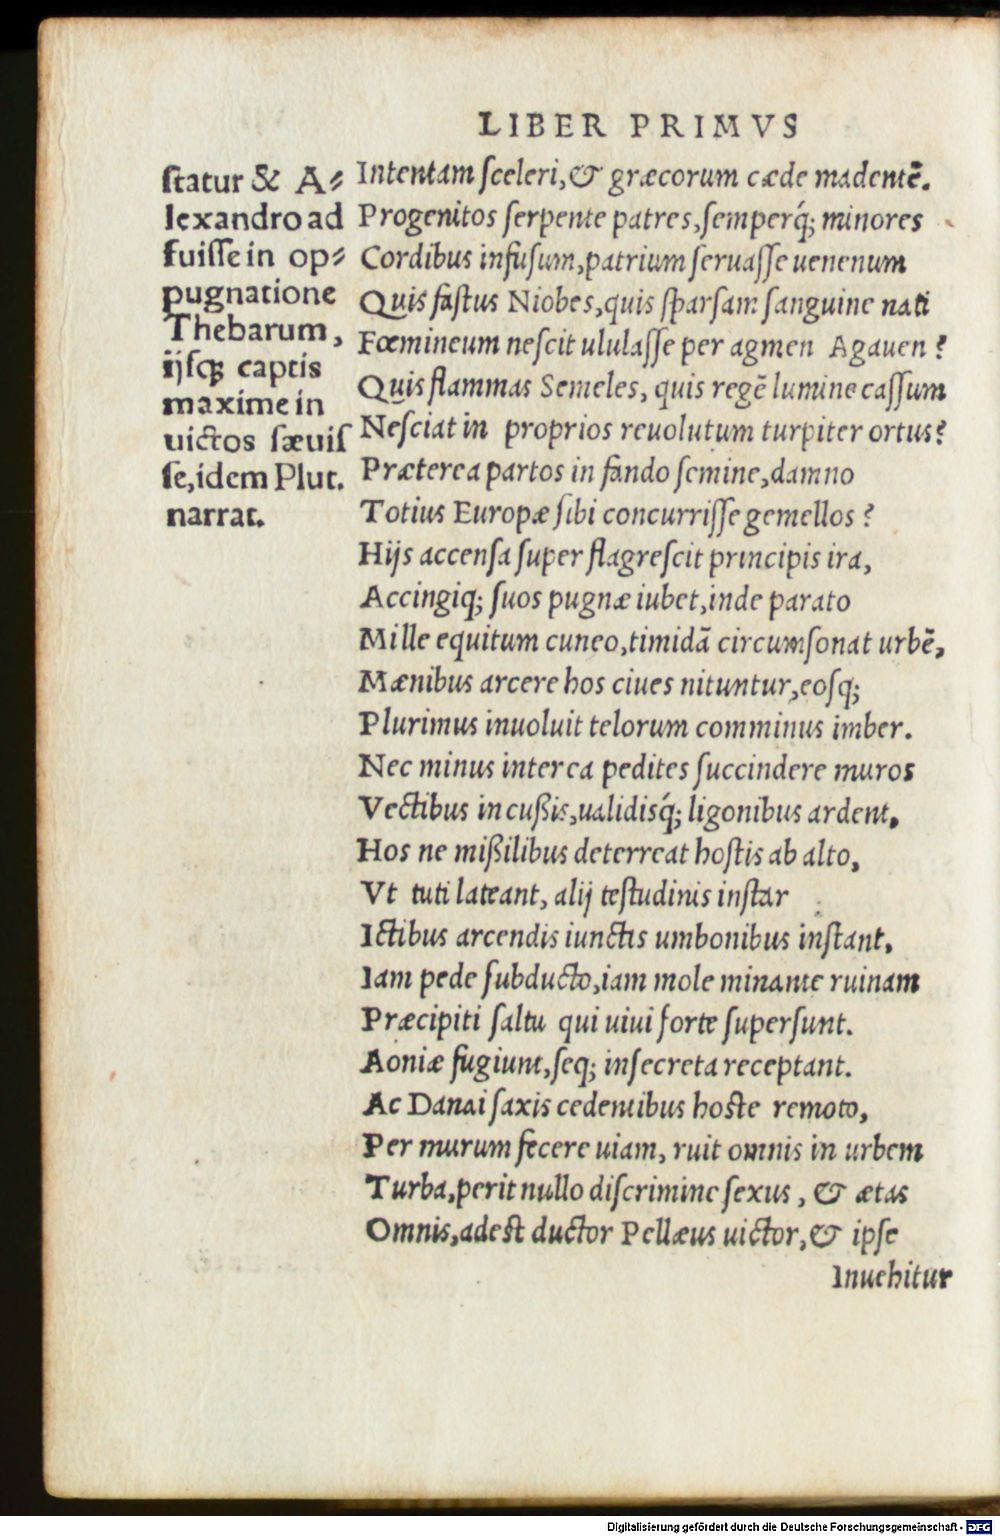 LIBER PRIMVS
ſtatur & A⸗
lexandro ad
fuiſſe in op⸗
pugnatione
Thebarum,
ijſqꝫ captis
maxime in
uictos ſæuiſ
ſe, idem Plut.
narrat.
Intentam ſceleri, & græcorum cæde madentē.
Progenitos ſerpente patres, ſemperq́; minores
Cordibus infuſum, patrium ſeruaſſe uenenum
Quis faſtus Niobes, quis ſparſam ſanguine nati
Fœmineum neſcit ululaſſe per agmen Agauen ?
Quis flammas Semeles, quis regē lumine caſſum
Neſciat in proprios reuolutum turpiter ortus?
Præterea partos in fando ſemine, damno
Totius Europæ ſibi concurriſſe gemellos ?
Hijs accenſa ſuper flagreſcit principis ira,
Accingiq; ſuos pugnæ iubet, inde parato
Mille equitum cuneo, timidā circumſonat urbē,
Mænibus arcere hos ciues nituntur, eoſq;
Plurimus inuoluit telorum comminus imber.
Nec minus interea pedites ſuccindere muros
Vectibus incußis, ualidisq́; ligonibus ardent,
Hos ne mißilibus deterreat hoſtis ab alto,
Vt tuti lateant, alij teſtudinis inſtar
Ictibus arcendis iunctis umbonibus inſtant,
Iam pede ſubducto, iam mole minante ruinam
Præcipiti ſaltu qui uiui forte ſuperſunt.
Aoniæ fugiunt, ſeq; in ſecreta receptant.
Ac Danai ſaxis cedentibus hoſte remoto,
Per murum fecere uiam, ruit omnis in urbem
Turba, perit nullo diſcrimine ſexus, & ætas
Omnis, adeſt ductor Pellæus uictor, & ipſe
Inuehitur
Digitalisierung gefördert durch die Deutsche Forschungsgemeinschaft - DFG